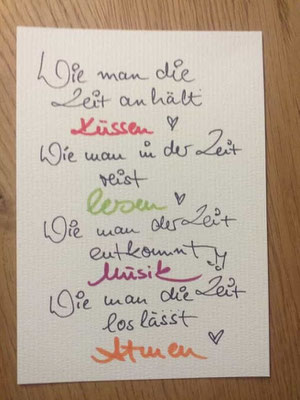 Wie man die
Zeit anhält
Küssen
Wie man in der Zeit
reist
lesen
Wie man der Zeit
entkommt
Musik
Wie man die Zeit
los lässt
Atmen